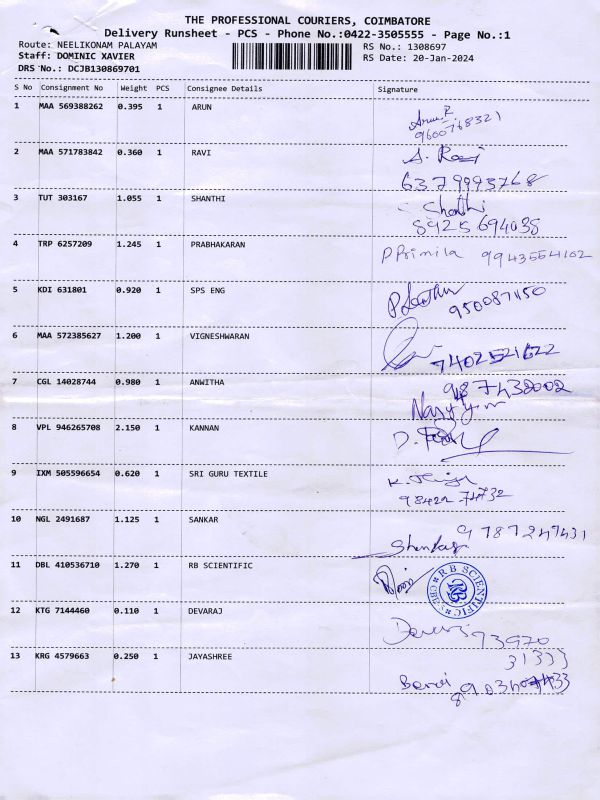 THE PROFESSIONAL COURIERS, COIMBATORE
Delivery Runsheet - PCS - Phone No.:0422-3505555 - Page No.:1
Route: NEELIKONAM PALAYAM
RS No.: 1308697
Staff: DOMINIC XAVIER
RS Date: 20-Jan-2024
DRS No.: DCJB130869701
S No Consignment No Weight PCS Consignee Details Signature
1 MAA 569388262 0.395 1 ARUN
9600768321
2 MAA 571783842 0.360 1 RAVI S. Ravi
6379993768
3 TUT 303167 1.055 1 SHANTHI Shanthi
8925694038
4 TRP 6257209 1.245 1 PRABHAKARAN P Primila 9943554102
5 KDI 631801 0.920 1 SPS ENG
6 MAA 572385627 1.200 1 VIGNESHWARAN
7 CGL 14028744 0.980 1 ANWITHA
8 VPL 946265708 2.150 1 KANNAN
9 IXM 505596654 0.620 1 SRI GURU TEXTILE
10 NGL 2491687 1.125 1 SANKAR
9787247431
11 DBL 410536710 1.270 1 RB SCIENTIFIC
RB SCIENTIFIC
RB
12 KTG 7144460 0.110 1 DEVARAJ
93970
31333
13 KRG 4579663 0.250 1 JAYASHREE